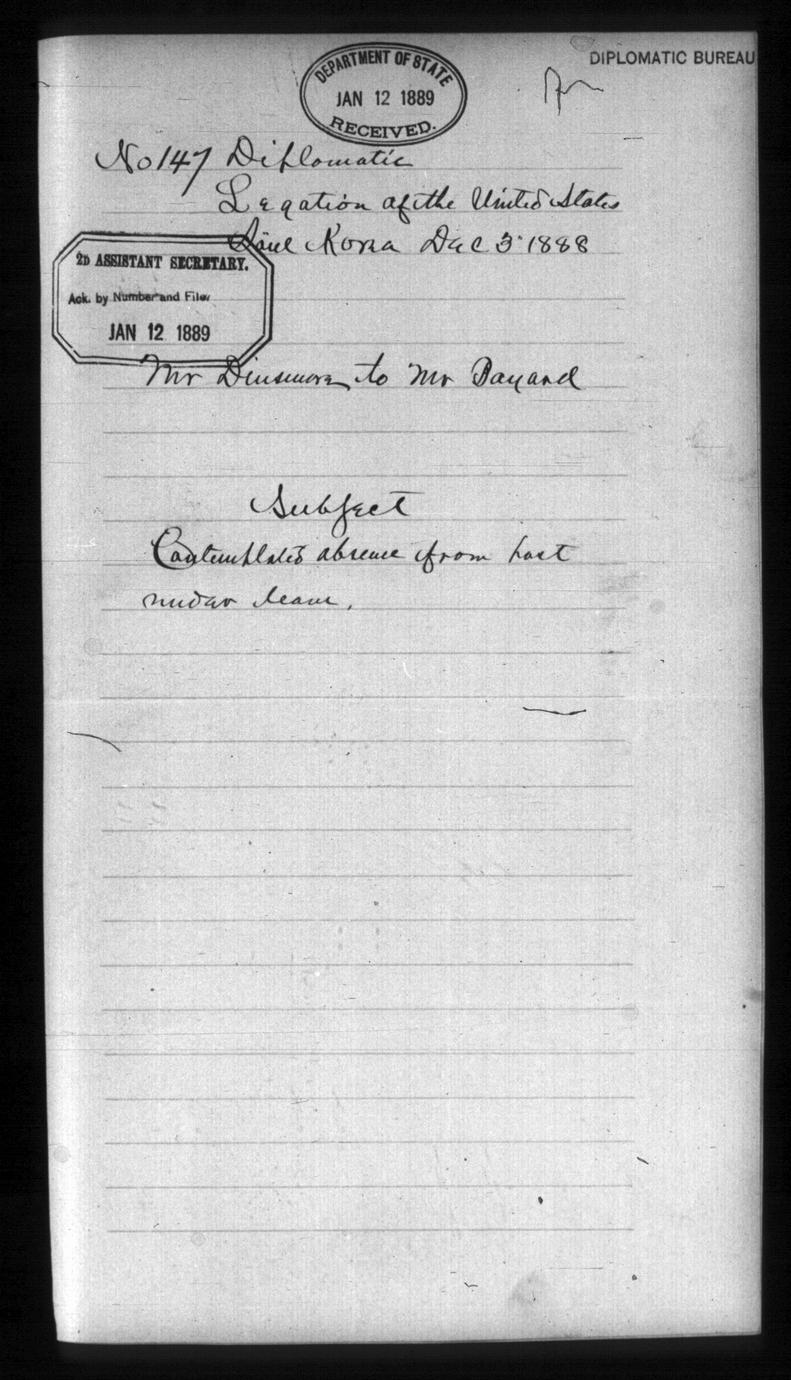 DIPLOMATIC BUREAU
DEPARTMENT OF STATE
JAN 12 1889
RECEIVED.
No 147 Diplomatic
Legation of the United States
Söul Korea Dec 3 1888
2D ASSISTANT SECRETARY.
Ack. by Number and File
JAN 12 1889
Mr Dinsmore to Mr Bayard
Subject
Contemplated absence from post
under leave.